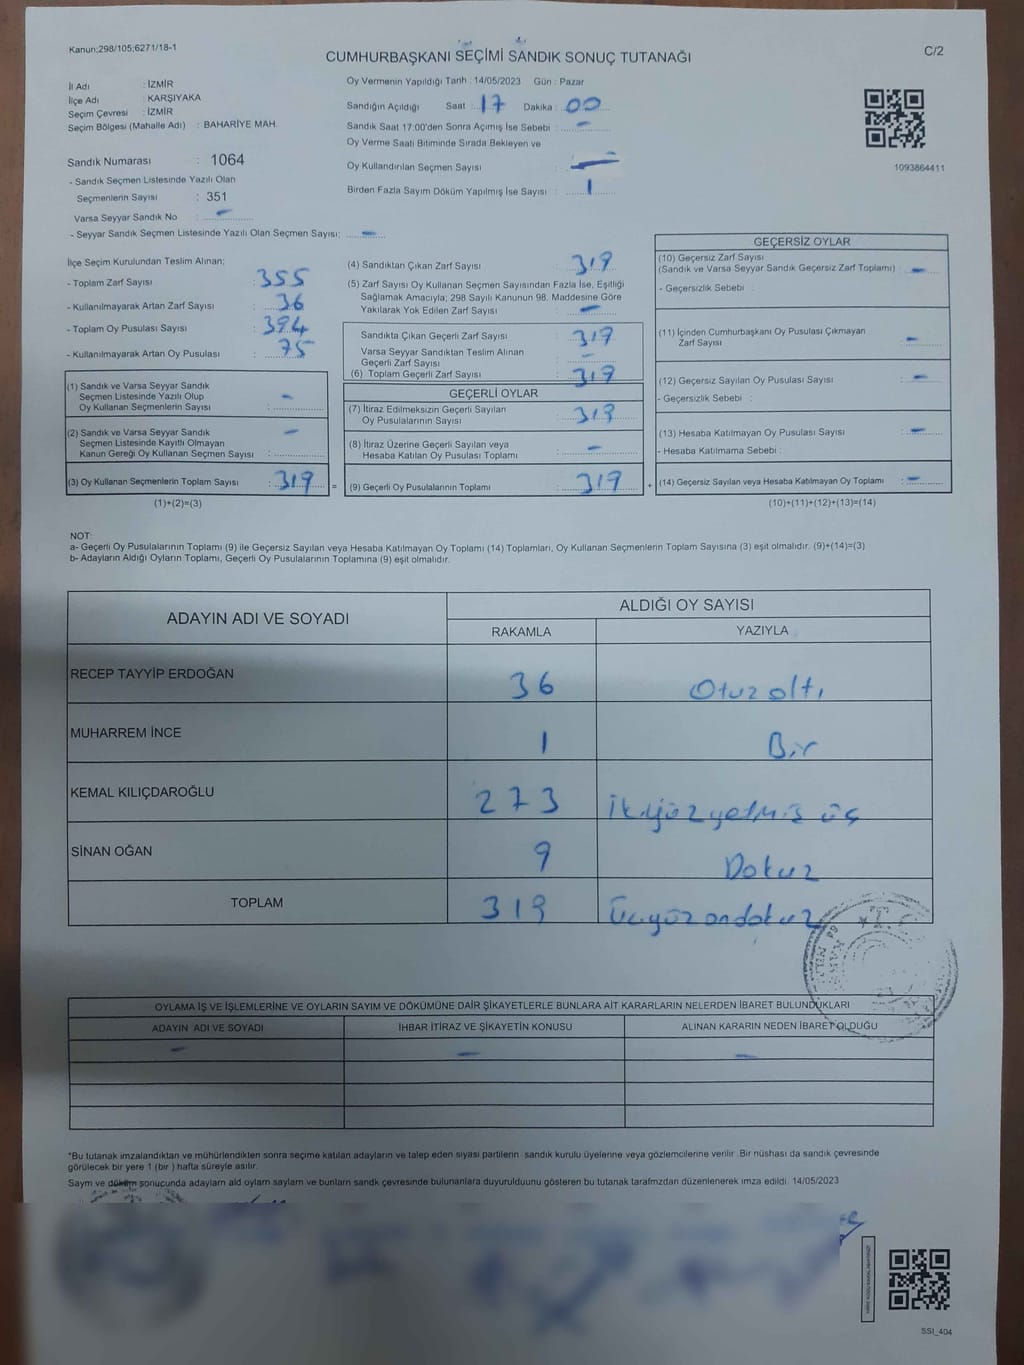 Kanun:298/105;6271/18-1
CUMHURBAŞKANI SEÇİMİ SANDIK SONUÇ TUTANAĞI
C/2
İl Adı : İZMİR
İlçe Adı : KARŞIYAKA
Seçim Çevresi : İZMİR
Seçim Bölgesi (Mahalle Adı) : BAHARİYE MAH.
Sandık Numarası : 1064
- Sandık Seçmen Listesinde Yazılı Olan
Seçmenlerin Sayısı : 351
Varsa Seyyar Sandık No : -
- Seyyar Sandık Seçmen Listesinde Yazılı Olan Seçmen Sayısı: -
Oy Vermenin Yapıldığı Tarih : 14/05/2023 Gün : Pazar
Sandığın Açıldığı Saat : 17 Dakika : 00
Sandık Saat 17:00'den Sonra Açımış İse Sebebi : -
Oy Verme Saati Bitiminde Sırada Bekleyen ve
Oy Kullandırılan Seçmen Sayısı : -
Birden Fazla Sayım Döküm Yapılmış İse Sayısı : 1
1093864411
İlçe Seçim Kurulundan Teslim Alınan;
- Toplam Zarf Sayısı : 355
- Kullanılmayarak Artan Zarf Sayısı : 36
- Toplam Oy Pusulası Sayısı : 394
- Kullanılmayarak Artan Oy Pusulası : 75
(1) Sandık ve Varsa Seyyar Sandık
Seçmen Listesinde Yazılı Olup
Oy Kullanan Seçmenlerin Sayısı : -
(2) Sandık ve Varsa Seyyar Sandık
Seçmen Listesinde Kayıtlı Olmayan
Kanun Gereği Oy Kullanan Seçmen Sayısı : -
(3) Oy Kullanan Seçmenlerin Toplam Sayısı : 319 =
(1)+(2)=(3)
(4) Sandıktan Çıkan Zarf Sayısı : 319
(5) Zarf Sayısı Oy Kullanan Seçmen Sayısından Fazla İse, Eşitliği
Sağlamak Amacıyla; 298 Sayılı Kanunun 98. Maddesine Göre
Yakılarak Yok Edilen Zarf Sayısı : -
Sandıkta Çıkan Geçerli Zarf Sayısı : 319
Varsa Seyyar Sandıktan Teslim Alınan
Geçerli Zarf Sayısı : -
(6) Toplam Geçerli Zarf Sayısı : 319
GEÇERLİ OYLAR
(7) İtiraz Edilmeksizin Geçerli Sayılan
Oy Pusulalarının Sayısı : 319
(8) İtiraz Üzerine Geçerli Sayılan veya
Hesaba Katılan Oy Pusulası Toplamı : -
(9) Geçerli Oy Pusulalarının Toplamı : 319 +
GEÇERSİZ OYLAR
(10) Geçersiz Zarf Sayısı
(Sandık ve Varsa Seyyar Sandık Geçersiz Zarf Toplamı) : -
- Geçersizlik Sebebi :
(11) İçinden Cumhurbaşkanı Oy Pusulası Çıkmayan
Zarf Sayısı : -
(12) Geçersiz Sayılan Oy Pusulası Sayısı : -
- Geçersizlik Sebebi :
(13) Hesaba Katılmayan Oy Pusulası Sayısı : -
- Hesaba Katılmama Sebebi :
(14) Geçersiz Sayılan veya Hesaba Katılmayan Oy Toplamı : -
(10)+(11)+(12)+(13)=(14)
NOT:
a- Geçerli Oy Pusulalarının Toplamı (9) ile Geçersiz Sayılan veya Hesaba Katılmayan Oy Toplamı (14) Toplamları, Oy Kullanan Seçmenlerin Toplam Sayısına (3) eşit olmalıdır. (9)+(14)=(3)
b- Adayların Aldığı Oyların Toplamı, Geçerli Oy Pusulalarının Toplamına (9) eşit olmalıdır.
ADAYIN ADI VE SOYADI
ALDIĞI OY SAYISI
RAKAMLA YAZIYLA
RECEP TAYYİP ERDOĞAN 36 Otuz altı
MUHARREM İNCE 1 Bir
KEMAL KILIÇDAROĞLU 273 ikiyüzyetmiş üç
SİNAN OĞAN 9 Dokuz
TOPLAM 319 Üçyüzondokuz
T.C.
OYLAMA İŞ VE İŞLEMLERİNE VE OYLARIN SAYIM VE DÖKÜMÜNE DAİR ŞİKAYETLERLE BUNLARA AİT KARARLARIN NELERDEN İBARET BULUNDUKLARI
ADAYIN ADI VE SOYADI İHBAR İTİRAZ VE ŞİKAYETİN KONUSU ALINAN KARARIN NEDEN İBARET OLDUĞU
- - -
*Bu tutanak imzalandıktan ve mühürlendikten sonra seçime katılan adayların ve talep eden siyasi partilerin sandık kurulu üyelerine veya gözlemcilerine verilir .Bir nüshası da sandık çevresinde
görülecek bir yere 1 (bir ) hafta süreyle asılır.
Saym ve döküm sonucunda adaylarn ald oylarn saylarn ve bunlarn sandk çevresinde bulunanlara duyurulduunu gösteren bu tutanak tarafmzdan düzenlenerek imza edildi. 14/05/2023
SSI_404